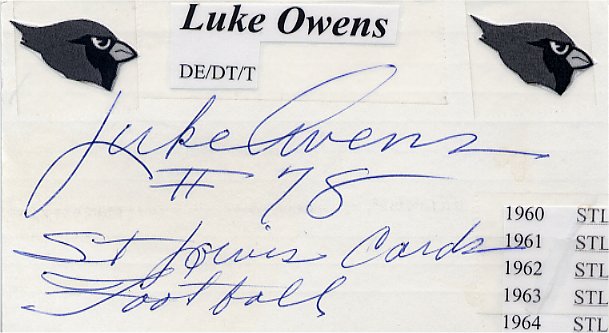 Luke Owens
DE/DT/T
Luke Owens
# 78
St Louis Cards
Football
1960 STL
1961 STL
1962 STL
1963 STL
1964 STL